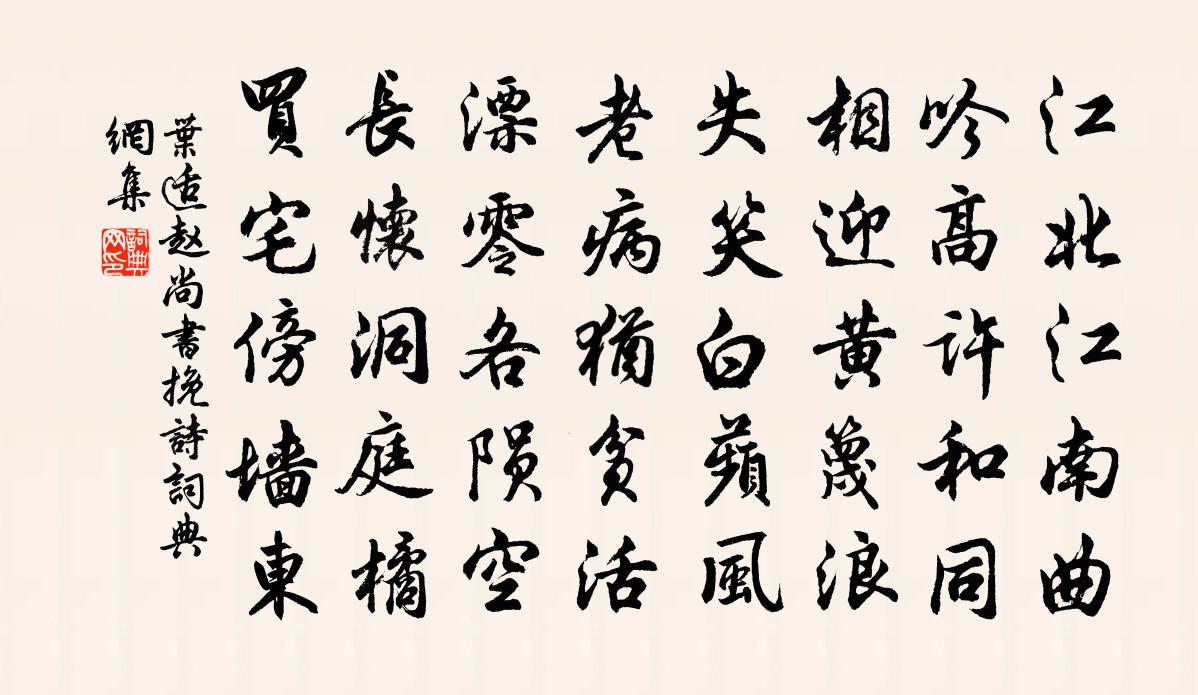 江北江南曲
吟高許和同
相迎黃蔑浪
失笑白蘋風
老病猶貧活
漂零各隕空
長懷洞庭橘
買宅傍墻東
葉适赵尚書挽詩詞典
網集
詞典
网印